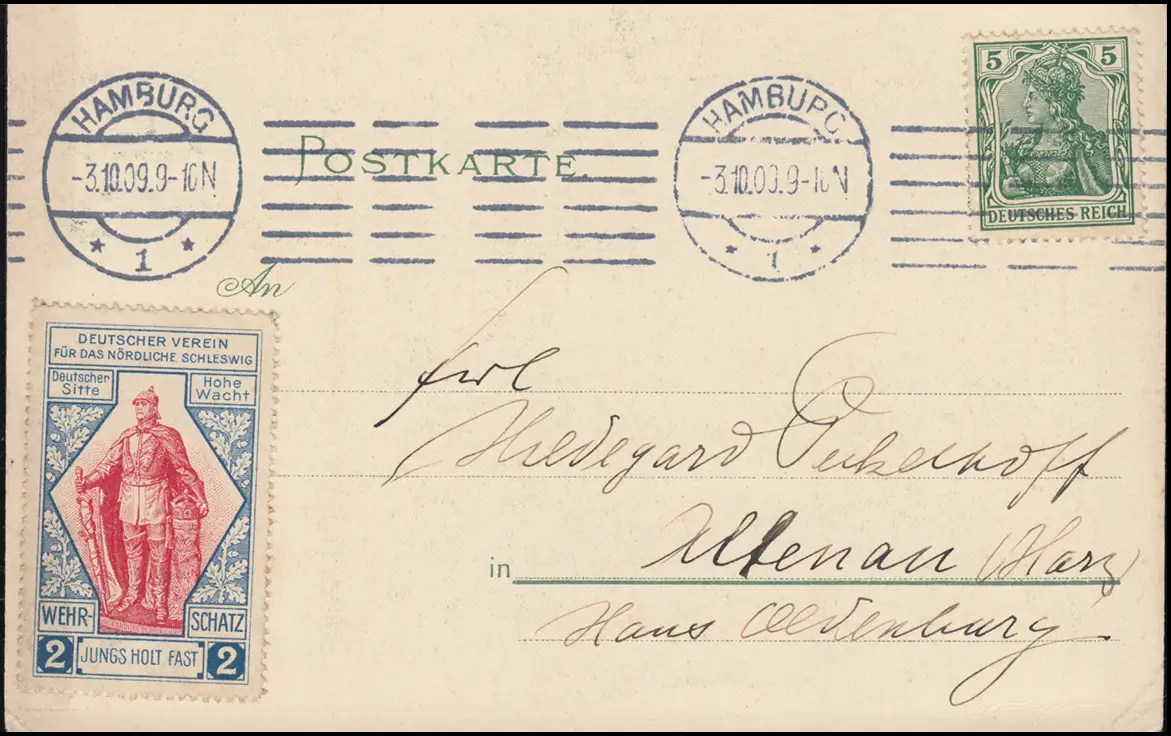 HAMBURG
-3.10.09.9-10N
* 1 *
HAMBURG
-3.10.09.9-10N
* 1 *
5 5
DEUTSCHES REICH
POSTKARTE.
An
Frl
Hildegard
in Altenau (Harz)
Haus Oldenburg
DEUTSCHER VEREIN
FÜR DAS NÖRDLICHE SCHLESWIG
Deutscher Sitte
Hohe Wacht
WEHR- SCHATZ
2 JUNGS HOLT FAST 2